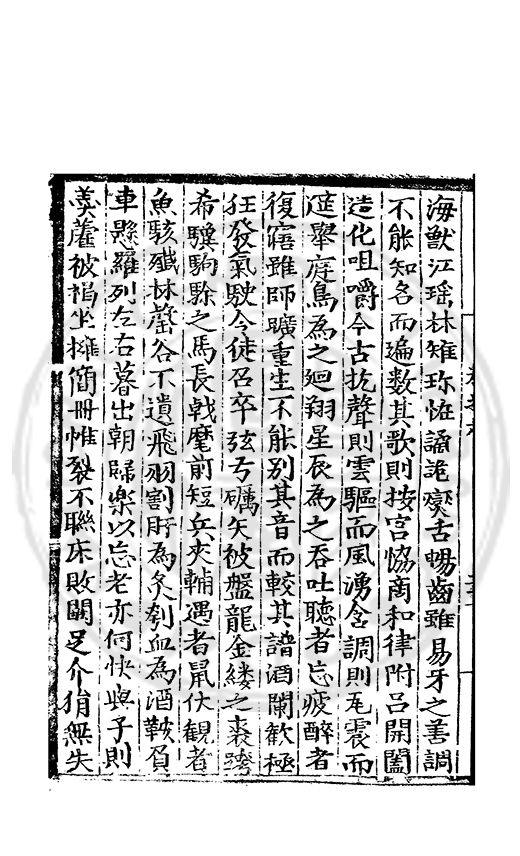 海獸江瑶林雉珍恠譎詭爽舌暢齒雖易牙之善調
不能知名而遍数其歌則按宫恊商和律附吕開闔
造化咀嚼今古抗聲則雲驅而風湧含調則毛震而
筵舉庭鳥為之廻翔星辰為之吞吐聽者忘疲醉者
復寤雖師曠重生不能别其音而較其譜酒闌歡極
狂發氣駛令徒召卒弦弓礪矢被盤龍金縷之裘跨
希驥駒騄之馬長戟麾前短兵夾輔遇者鼠伏觀者
魚駭殲林罄谷不遺飛翎割肝為炙刳血為酒載負
車懸羅列左右暮出朝歸樂以忘老亦何快與子則
羮藿被褐坐擁簡冊帷裂不聯床敗闕足介狷無失